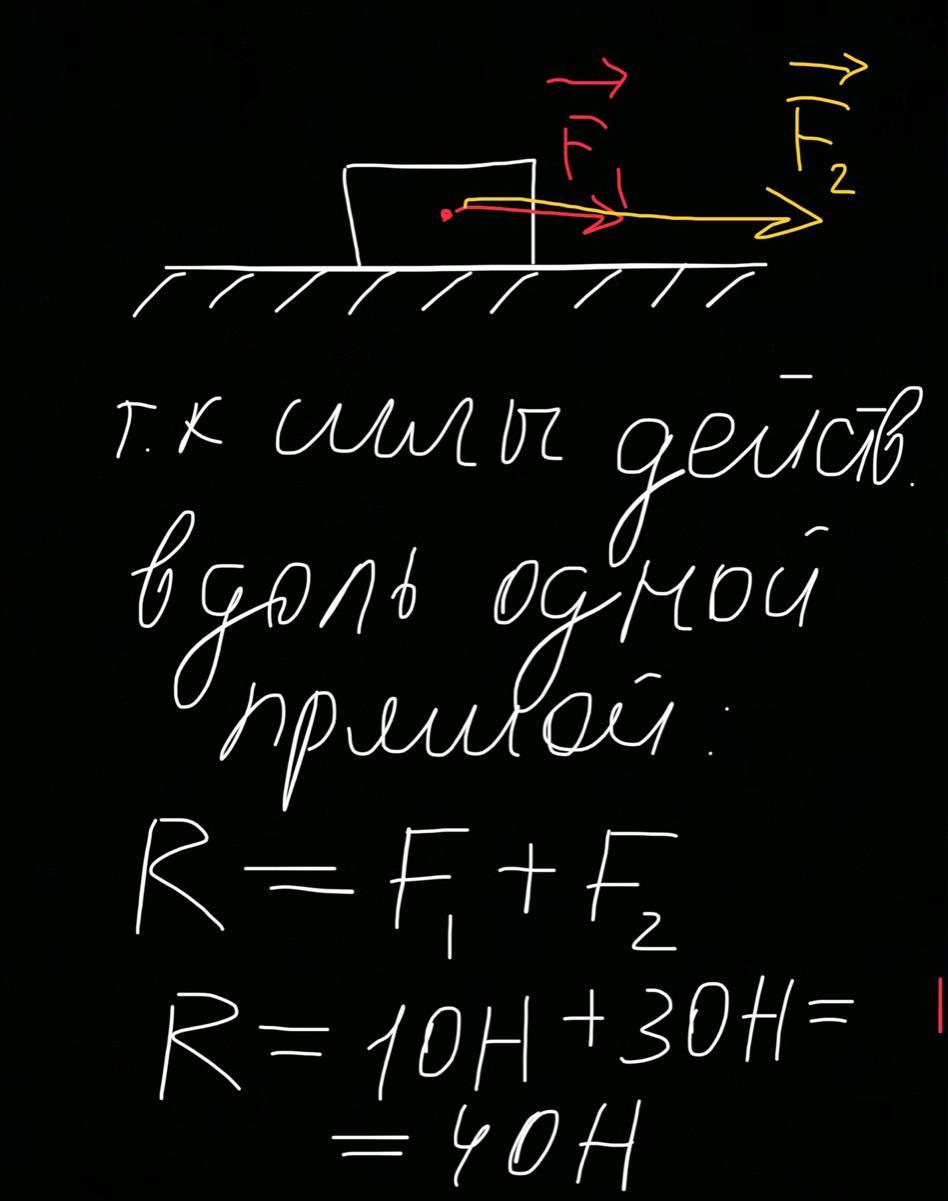 F₁
F₂
т.к силы действ.
вдоль одной
прямой:
R = F₁ + F₂
R = 10Н + 30Н =
= 40Н